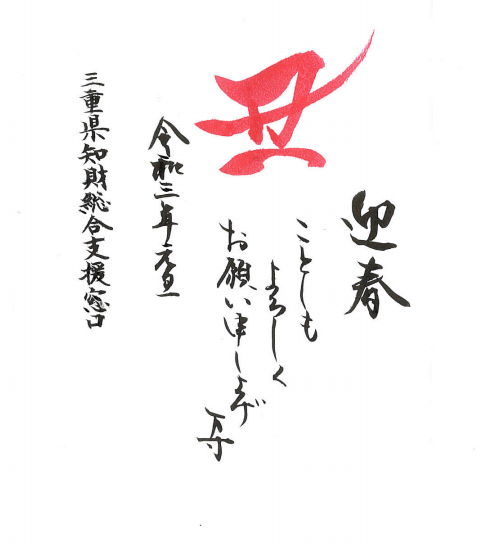 丑
迎春
ことしも
よろしく
お願い申し上げ
ます
令和三年元旦
三重県知財総合支援窓口